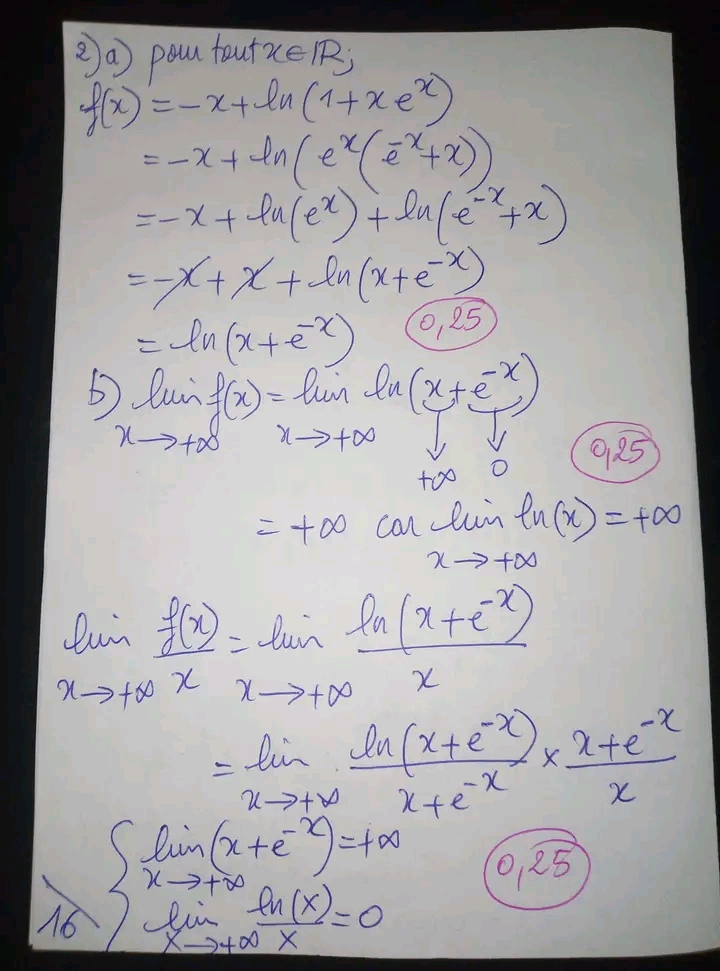 2) a) pour tout x ∈ ℝ;
f(x) = -x + ln(1 + x e^x)
= -x + ln(e^x(e^-x + x))
= -x + ln(e^x) + ln(e^-x + x)
= -x + x + ln(x + e^-x)
= ln(x + e^-x)
0,25
b) lim f(x) = lim ln(x + e^-x)
x → +∞ x → +∞
+∞ 0
0,25
= +∞ car lim ln(x) = +∞
x → +∞
lim f(x)/x = lim ln(x + e^-x)/x
x → +∞ x → +∞
= lim ln(x + e^-x)/(x + e^-x) × (x + e^-x)/x
x → +∞
lim (x + e^-x) = +∞
x → +∞
0,25
lim ln(X)/X = 0
X → +∞
16